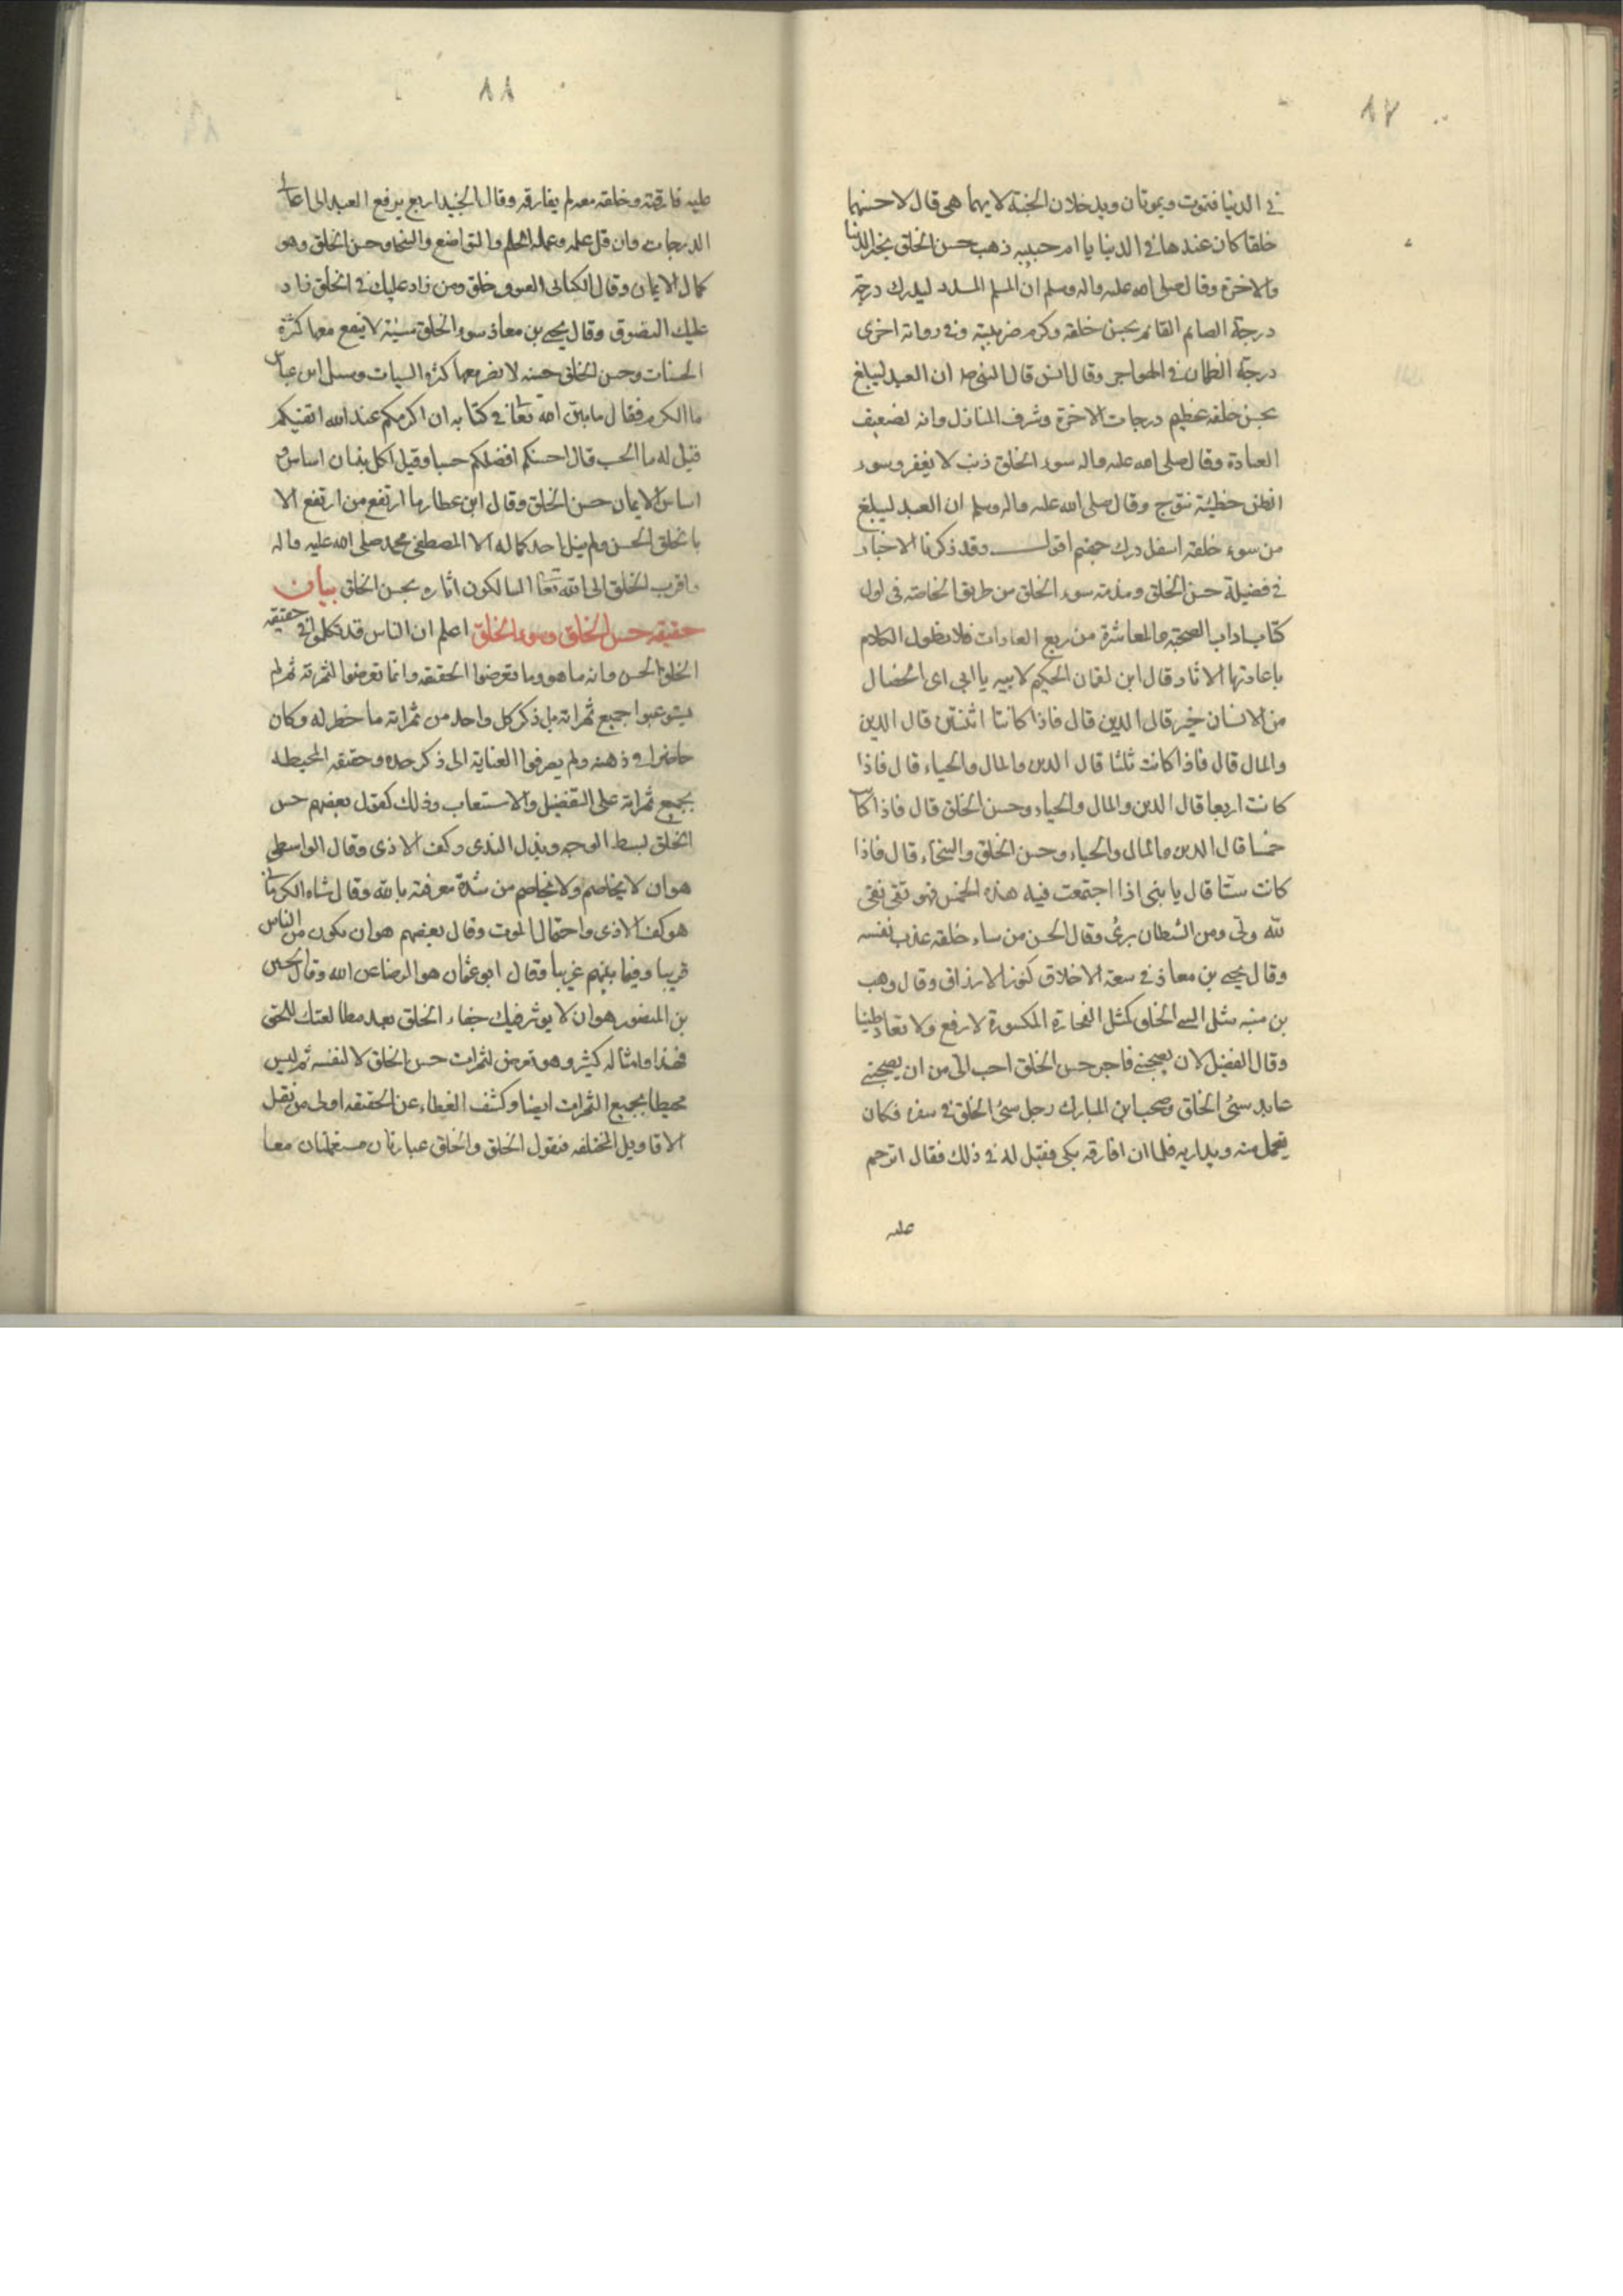 ٨٧
في الدنيا فتموت ويموتان ويدخلان الجنة لايهما هي قال لاحسنهما
خلقا كان عندها في الدنيا يا ام حبيبه ذهب حسن الخلق بخير الدنيا
والاخرة وقال صلى الله عليه واله وسلم ان المسلم المسدد ليدرك درجة
درجة الصائم القائم بحسن خلقه وكرم ضريبته وفي رواية اخرى
درجة الظمان في الهواجر وقال انس قال النبي ص ان العبد ليبلغ
بحسن خلقه عظيم درجات الاخرة وشرف المنازل وانه لضعيف
العبادة وقال صلى الله عليه واله سوء الخلق ذنب لا يغفر وسوء
الظن خطيئة تنوج وقال صلى الله عليه واله وسلم ان العبد ليبلغ
من سوء خلقه اسفل درك جهنم اقول وقد ذكرنا الاخبار
في فضيلة حسن الخلق ومذمة سوء الخلق من طريق الخاصة في اول
كتاب اداب الصحبة والمعاشرة من ربع العادات فلا نطول الكلام
باعادتها الاثار قال ابن لقمان الحكيم لابيه يا ابي اي الخصال
من الانسان خير قال الدين قال فاذا كانتا اثنتين قال الدين
والمال قال فاذا كانت ثلثا قال الدين والمال والحياء قال فاذا
كانت اربعا قال الدين والمال والحياء وحسن الخلق قال فاذا كانت
خمسا قال الدين والمال والحياء وحسن الخلق والسخاء قال فاذا
كانت ستا قال يا بني اذا اجتمعت فيه هذه الخمس فهو تقي نقي
لله ولي ومن الشيطان بري وقال الحسن من ساء خلقه عذب نفسه
وقال يحيي بن معاذ في سعة الاخلاق كنوز الارزاق وقال وهب
بن منبه مثل السيي الخلق كمثل الفخارة المكسورة لا ترقع ولا تعاد طينا
وقال الفضيل لان يصحبني فاجر حسن الخلق احب الي من ان يصحبني
عابد سيئ الخلق وصحب ابن المبارك رجل سيئ الخلق في سفره فكان
يحمل منه ويداريه فلما ان افارقه بكى فقيل له في ذلك فقال اترحم
عليه
٨٨
عليه فارقته وخلقه معه لم يفارقه وقال الجنيد اربع يرفع العبد الى اعلى
الدرجات وان قل علمه وعمله الحلم والتواضع والسخاء وحسن الخلق وهو
كمال الايمان وقال الكناني التصوف خلق ومن زاد عليك في الخلق زاد
عليك التصوف وقال يحيي بن معاذ سوء الخلق سيئة لا ينفع معها كثرة
الحسنات وحسن الخلق حسنة لا يضر معها كثرة السيات وسئل ابن عباس
ما الكرم فقال ما بين الله تعالى في كتابه ان اكرمكم عند الله اتقيكم
قيل له ما الحسب قال احسنكم افضلكم حسبا وقيل لكل بنيان اساس و
اساس الايمان حسن الخلق وقال ابن عطا ما ارتفع من ارتفع الا
بالخلق الحسن ولم ينل احد كماله الا المصطفى محمد صلى الله عليه واله
واقرب الخلق الى الله تعالى السالكون اثاره بحسن الخلق بيان
حقيقه حسن الخلق وسوء الخلق اعلم ان الناس قد تكلموا في حقيقه
الخلق الحسن وانه ما هو وما تعرضوا الحقيقه وانما تعرضوا لثمرته ثم لم
يستوعبوا جميع ثمراته بل ذكر كل واحد من ثمراته ما خطر له وكان
حاضرا في ذهنه ولم يصرفوا العناية الى ذكر حده وحقيقه المحيطه
بجميع ثمراته على التفصيل والاستعاب وذلك كقول بعضهم حسن
الخلق بسط الوجه وبذل الندى وكف الاذى وقال الواسطي
هو ان لا يخاصم ولا يخاصم من شدة معرفته بالله وقال شاه الكرماني
هو كف الاذى واحتمال الموت وقال بعضهم هو ان يكون من الناس
قريبا وفيما بينهم غريبا وقال ابو عثمان هو الرضا عن الله وقال الحسين
بن المنصور هو ان لا يوثر فيك جفاء الخلق بعد مطالعتك للحق
فهذا وامثاله كثير وهو تعرض لثمرات حسن الخلق لا لنفسه ثم ليس
محيطا بجميع الثمرات ايضا وكشف الغطاء عن الحقيقه اولى من نقل
الاقاويل المختلفه فنقول الخلق والخلق عبارتان مستعملتان معا